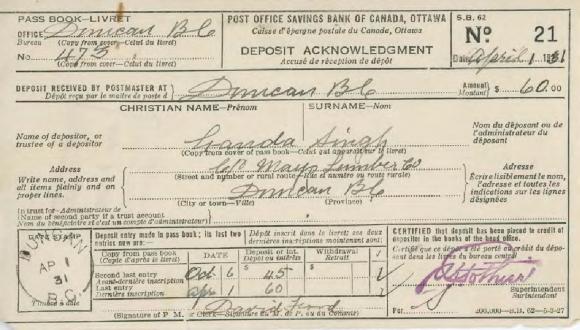 PASS BOOK-LIVRET
OFFICE Duncan B.C.
Bureau (Copy from cover-Celui du livret)
No. 473
(Copy from cover-Celui du livret)
POST OFFICE SAVINGS BANK OF CANADA, OTTAWA
Caisse d'épargne postale du Canada, Ottawa
DEPOSIT ACKNOWLEDGMENT
Accusé de réception de dépôt
S.B. 62
No 21
Date April 1 1931
DEPOSIT RECEIVED BY POSTMASTER AT Duncan B.C. Amount $ 60.00
Dépôt reçu par le maître de poste d Montant
CHRISTIAN NAME-Prénom SURNAME-Nom
Name of depositor, or trustee of a depositor
Singh
(Copy from cover of pass book-Celui qui apparaît sur le livret)
Nom du déposant ou de l'administrateur du déposant
Address
Write name, address and all items plainly and on proper lines.
c/o Mayo Lumber Co
(Street and number or rural route-Rue et numéro ou route rurale)
Duncan B.C.
(City or town-Ville) (Province)
Adresse
Ecrire lisiblement le nom, l'adresse et toutes les indications sur les lignes désignées
In trust for-Administrateur de
(Name of second party if a trust account)
Nom du bénéficiaire (s'il est un compte d'administrateur)
DATE STAMP
DUNCAN
AP 1
31
B.C.
Timbre à date
Deposit entry made in pass book; its last two entries now are:
Dépôt inscrit dans le livret; ses deux dernières inscriptions maintenant sont:
Copy from pass book
Copier du livret
DATE
Deposit or Int.
Dépôt ou intérêt
Withdrawal
Retrait
Second last entry
Avant-dernière inscription
Oct 6 $ 45 $
Last entry
Dernière inscription
Apr 1 60
David
(Signature of P. M. or Clerk-Signature du M. de P. ou du Commis)
CERTIFIED that deposit has been placed to credit of depositor in the books of the head office.
Certifié que ce dépôt a été porté au crédit du déposant dans les livres du bureau central
Superintendent
Surintendant
Per
400,000-S.B. 62-5-2-27